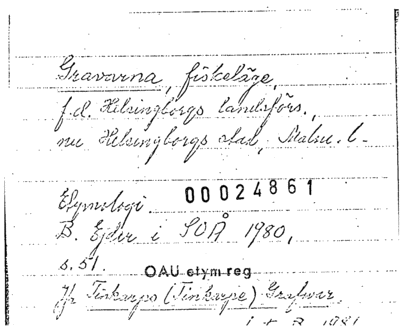 Gravarna, fiskeläge,
f.d. Helsingborgs landsförs.,
nu Helsingborgs stad, Malm. l.
Etymologi 00024861
B. Ejder i SOÅ 1980,
s. 51.
OAU etym reg
Jfr Tinkarps (Tinkarpe) Grafvar,
1981